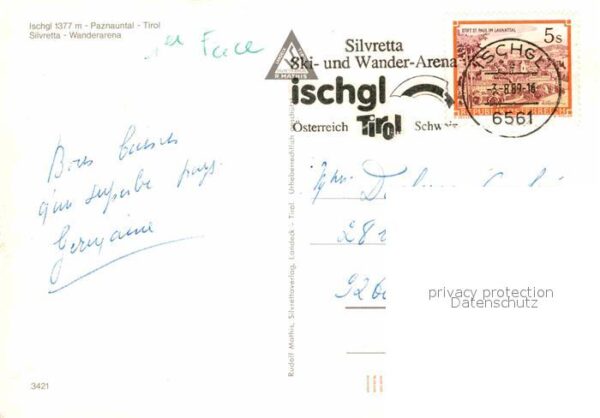 Ischgl 1377 m - Paznauntal - Tirol
Silvretta - Wanderarena
Face
P. MATHIS
Silvretta
Ski- und Wander-Arena
ischgl
Österreich Tirol
5s
STIFT ST. PAUL IM LAVANTTAL
REPUBLIK ÖSTERREICH
ISCHGL
-3.-8.89-16
6561
Bons baisers
d'un superbe pays.
Germaine
Rudolf Mathis, Silvrettaverlag, Landeck - Tirol. Unberechtlich
28
926
privacy protection
Datenschutz
3421